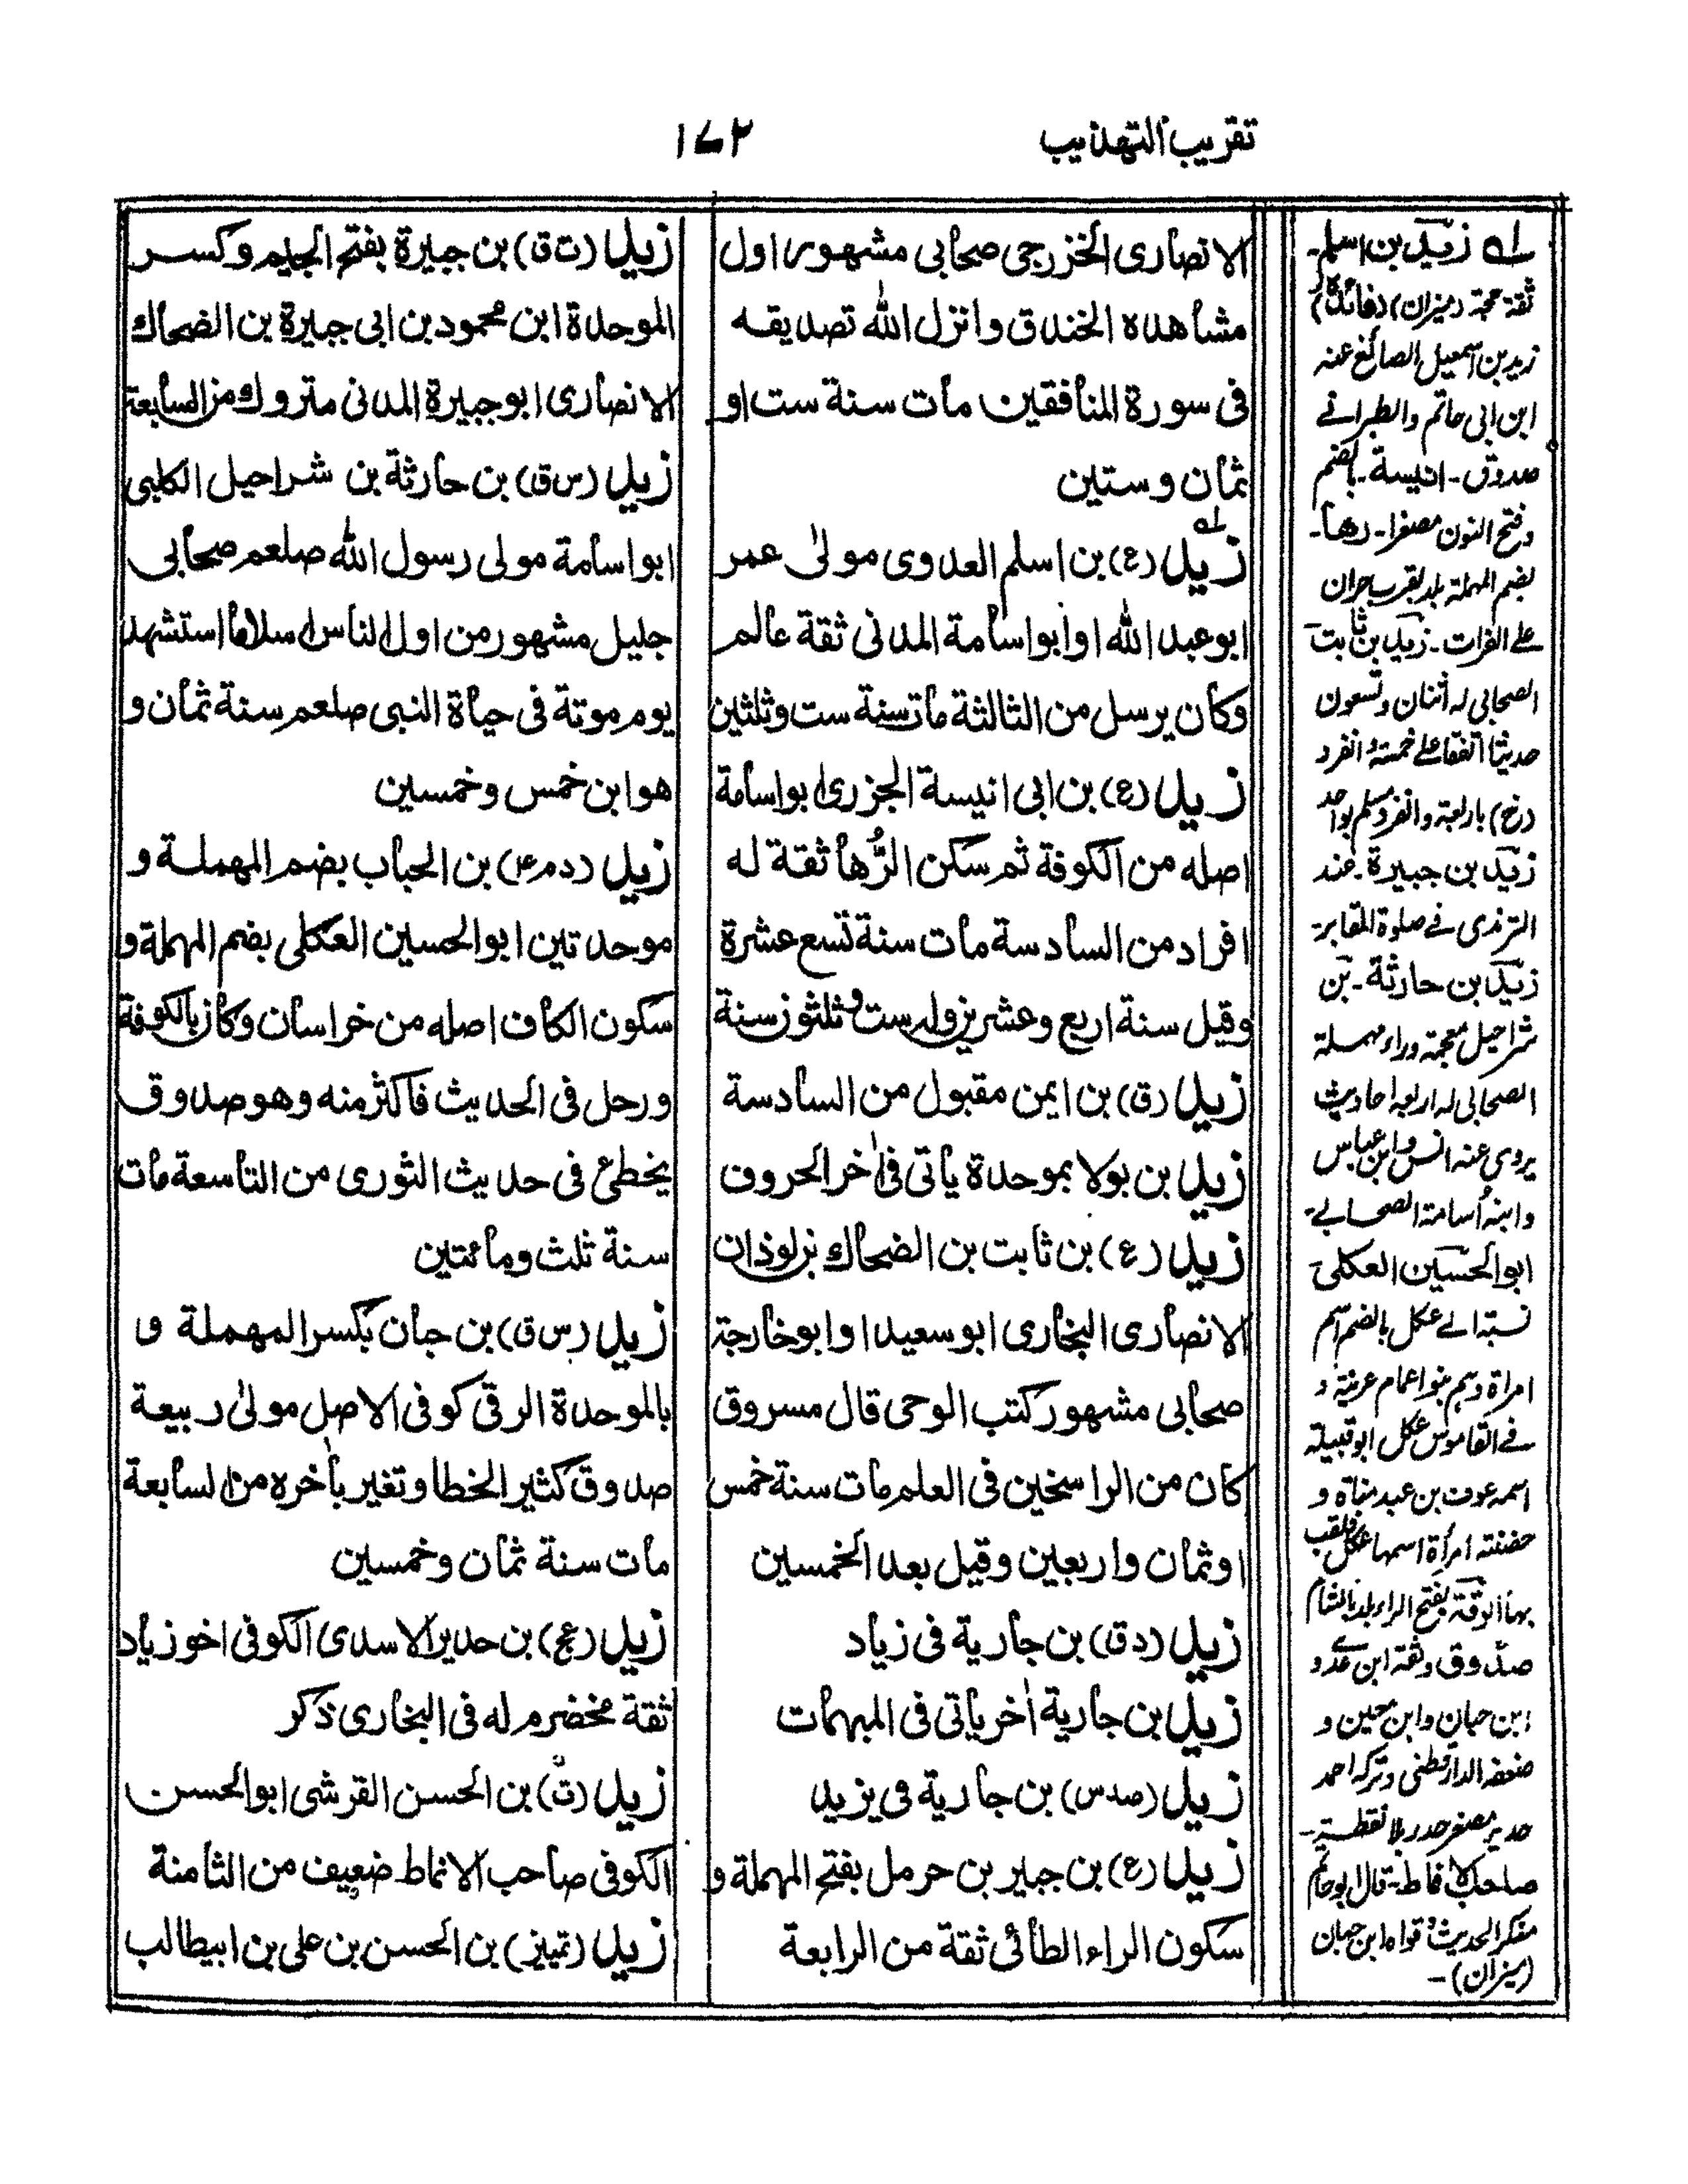 تقریب التهذیب
١٧٢
الانصاری الخزرجی صحابی مشهور اول
مشاهده الخندق وانزل الله تصدیقه
فی سورة المنافقین مات سنة ست او
ثمان وستین
زید (ع) بن اسلم العدوی مولیٰ عمر
ابوعبد الله او ابواسامة المدنی ثقة عالم
وکان یرسل من الثالثة مات سنة ست وثلثین
زید (ع) بن ابی انیسة الجزری ابواسامة
اصله من الکوفة ثم سکن الرُّها ثقة له
افراد من السادسة مات سنة تسع عشرة
وقیل سنة اربع وعشرین وله ست وثلثون سنة
زید (ق) بن ایمن مقبول من السادسة
زید بن بولا بموحدة یأتی فی اٰخر الحروف
زید (ع) بن ثابت بن الضحاك بن لوذان
الانصاری البخاری ابو سعید او ابوخارجة
صحابی مشهور کتب الوحی قال مسروق
کان من الراسخین فی العلم مات سنة خمس
او ثمان واربعین وقیل بعد الخمسین
زید (دق) بن جاریة فی زیاد
زید بن جاریة اٰخر یاتی فی المبهمات
زید (صدس) بن جاریة فی یزید
زید (ع) بن جبیر بن حرمل بفتح المهملة و
سکون الراء الطائی ثقة من الرابعة
زید (ت ق) بن جبیرة بفتح الجیم وکسر
الموحدة ابن محمود بن ابی جبیرة بن الضحاك
الانصاری ابو جبیرة المدنی متروك من السابعة
زید (س ق) بن حارثة بن شراحیل الکلبی
ابو اسامة مولی رسول الله صلعم صحابی
جلیل مشهور من اول الناس اسلاما استشهد
یوم موتة فی حیاة النبی صلعم سنة ثمان و
هو ابن خمس وخمسین
زید (ردم ع) بن الحباب بضم المهملة و
موحدتین ابو الحسین العکلی بضم المهملة و
سکون الکاف اصله من خراسان وکان بالکوفة
ورحل فی الحدیث فاکثر منه وهو صدوق
یخطئ فی حدیث الثوری من التاسعة مات
سنة ثلث ومائتین
زید (س ق) بن حبان بکسر المهملة و
بالموحدة الرقی کوفی الاصل مولیٰ ربیعة
صدوق کثیر الخطا وتغیر باٰخره من السابعة
مات سنة ثمان وخمسین
زید (عج) بن حدیر الاسدی الکوفی اخو زیاد
ثقة مخضرم له فی البخاری ذکر
زید (ت) بن الحسن القرشی ابو الحسن
الکوفی صاحب الانماط ضعیف من الثامنة
زید (تمییز) بن الحسن بن علی بن ابیطالب
لہ زید بن اسلم۔
ثقة حجة (میزان) (فائدة)
زید بن اسمعیل الصائغ عنه
ابن ابی حاتم والطبرانے
صدوق۔ انیسة۔ بالضم
وفتح النون مصغرا۔ رها۔
بضم المهملة بلد بقرب حران
علے الفرات۔ زید بن ثابت
الصحابی له اثنان وتسعون
حدیثا اتفقا علے خمسة وانفرد
(خ) باربعة وانفرد مسلم بواحد
زید بن جبیرة۔ عند
الترمذی فے صلوة المقابر۔
زید بن حارثة۔ بن
شراحیل معجمة وراء مهملة
الصحابی له اربعة احادیث
یروی عنه انس وابن عباس
وابنه اُسامة الصحابے۔
ابو الحسین العکلی
نسبة الے عکل بالضم اسم
امراة وهم بنو اعمام عرینة و
فے القاموس عکل ابو قبیلة
اسمه عوف بن عبد مناة و
حضنته امرأة اسمها عکل فلقب
بها الرقة بفتح الراء بلد بالشام
صدوق وثقه ابن عدی و
ابن حبان وابن معین و
ضعفه الدارقطنی وترکه احمد
حدیر مصغر حدر بلا نقطة۔
صاحب الانماط۔ قال ابو حاتم
منکر الحدیث وقواه ابن حبان
(میزان)۔